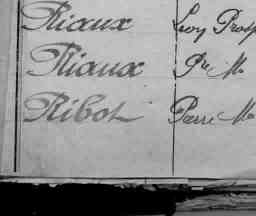 Riaux Leon Prosp
Riaux Pre M
Ribot Pierre M